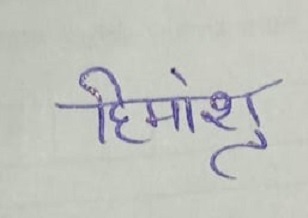 हिमांशु